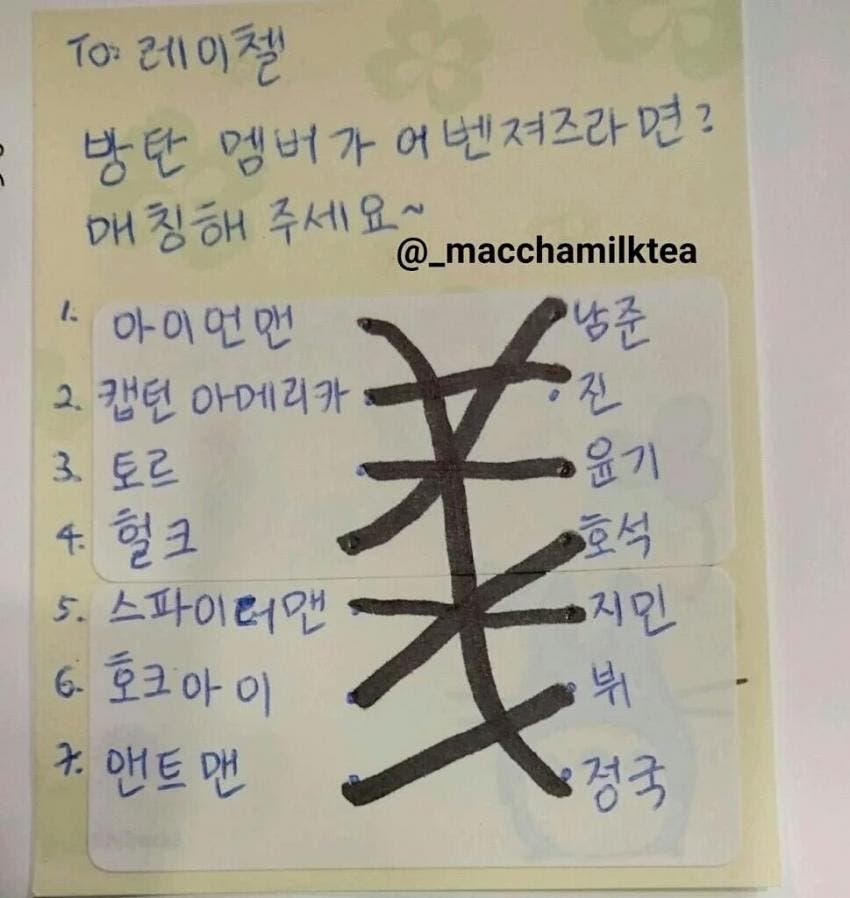 To: 레이첼
방탄 멤버가 어벤져즈라면?
매칭해 주세요~
@_macchamilktea
1. 아이언맨 남준
2. 캡틴 아메리카 진
3. 토르 윤기
4. 헐크 호석
5. 스파이더맨 지민
6. 호크아이 뷔
7. 앤트맨 정국